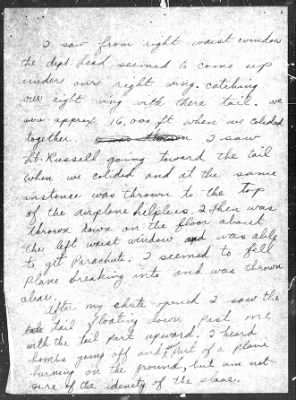 I saw from right waist window
the dept. lead seemed to come up
under our right wing. catching
our right wing with there tail. we
were approx 16,000 ft when we colided
together. I saw
Lt. Russell going toward the tail
when we colided and at the same
instance was thrown to the top
of the airplane helpless. I then was
thrown down on the floor about
the left waist window and was able
to get Parachute. I seemed to fell
plane breaking into and was thrown
clear.
After my chute opened I saw the
tail floating down past me
with the tail part upward. I heard
bombs going off and part of a plane
burning on the ground, but am not
sure of the idenity of the plane.